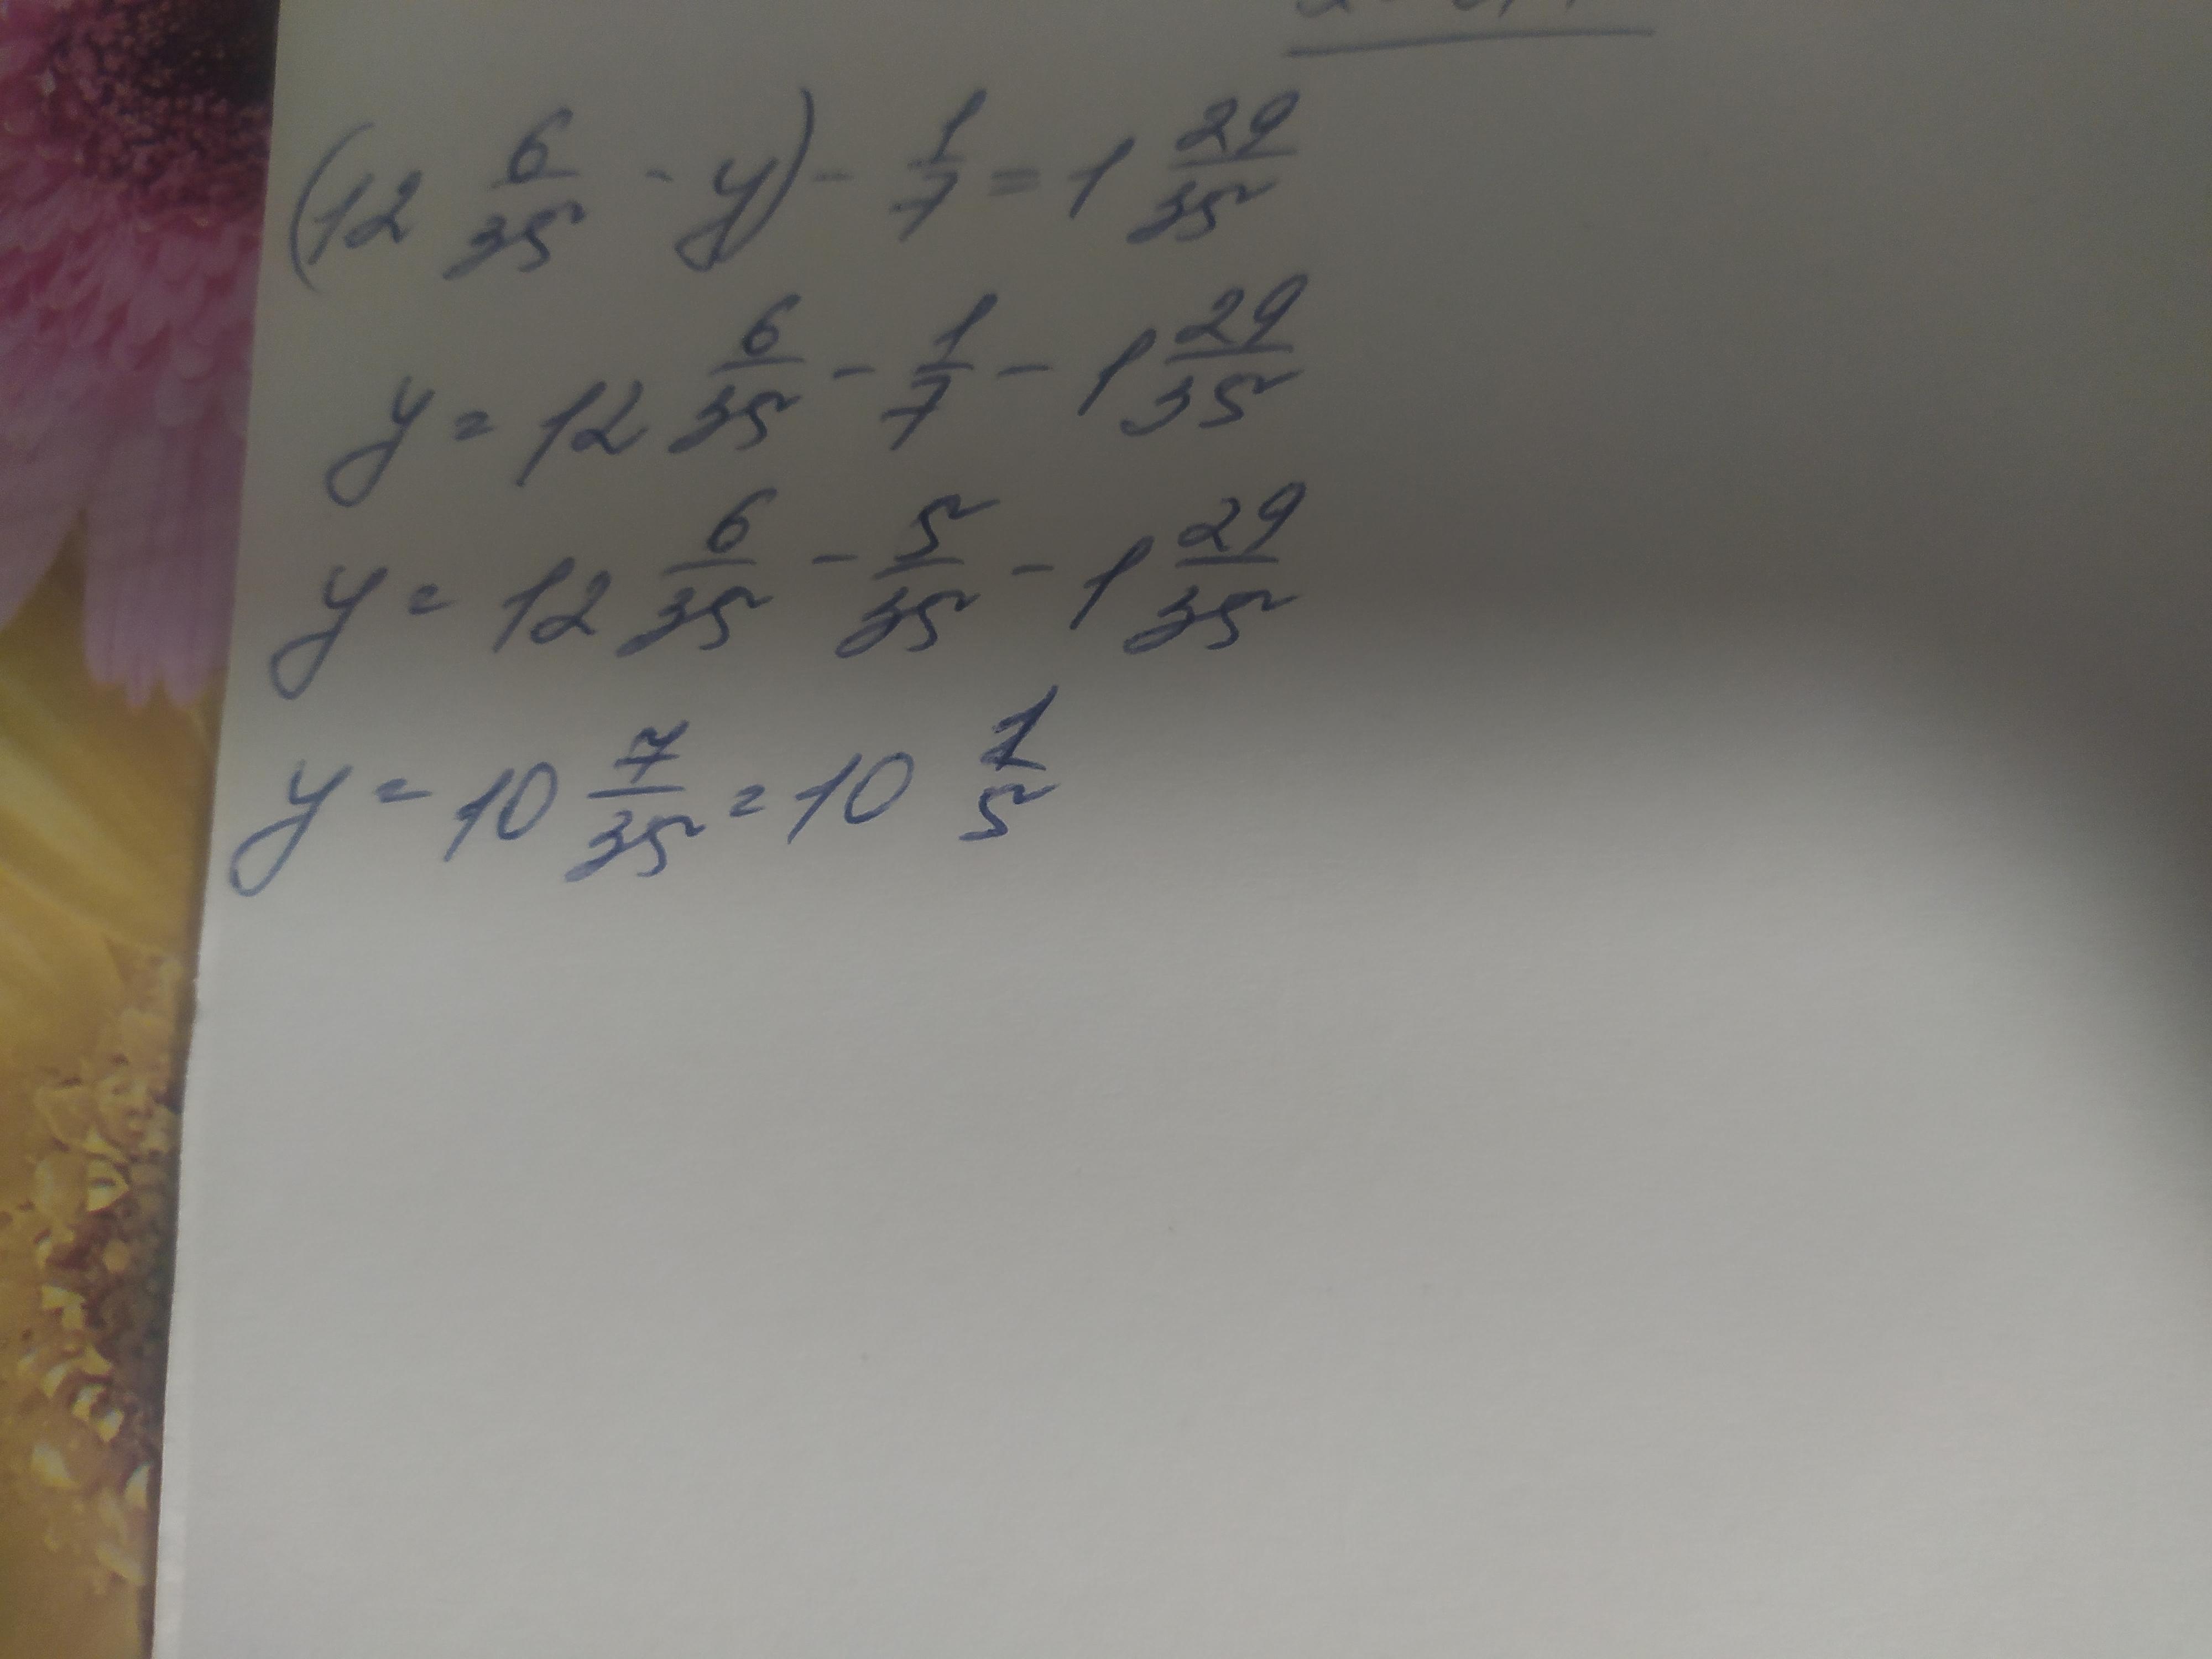 (12 6/35 - y) - 1/7 = 1 29/35
y = 12 6/35 - 1/7 - 1 29/35
y = 12 6/35 - 5/35 - 1 29/35
y = 10 7/35 = 10 1/5